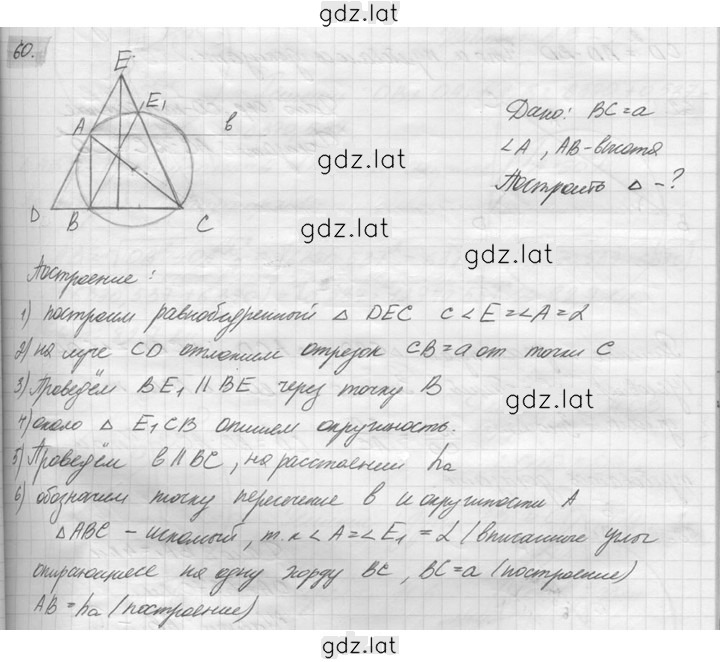 gdz.lat
60.
E
E₁
A
в
D B C
Дано: BC = a
∠A, AB - высота
Построить △ - ?
gdz.lat
gdz.lat
gdz.lat
Построение:
1) построим равнобедренный △ DEC с ∠E = ∠A = α
2) на луче CD отложим отрезок CB = a от точки C
3) Проведём BE₁ || BE через точку B
4) около △ E₁CB опишем окружность.
5) Проведём в || BC, на расстоянии ha
6) обозначим точку пересечение в и окружности A
△ABC - искомый, т.к ∠A = ∠E₁ = α (вписанные углы
опирающиеся на одну хорду BC, BC = a (построение)
AB = ha (построение)
gdz.lat
gdz.lat
gdz.lat